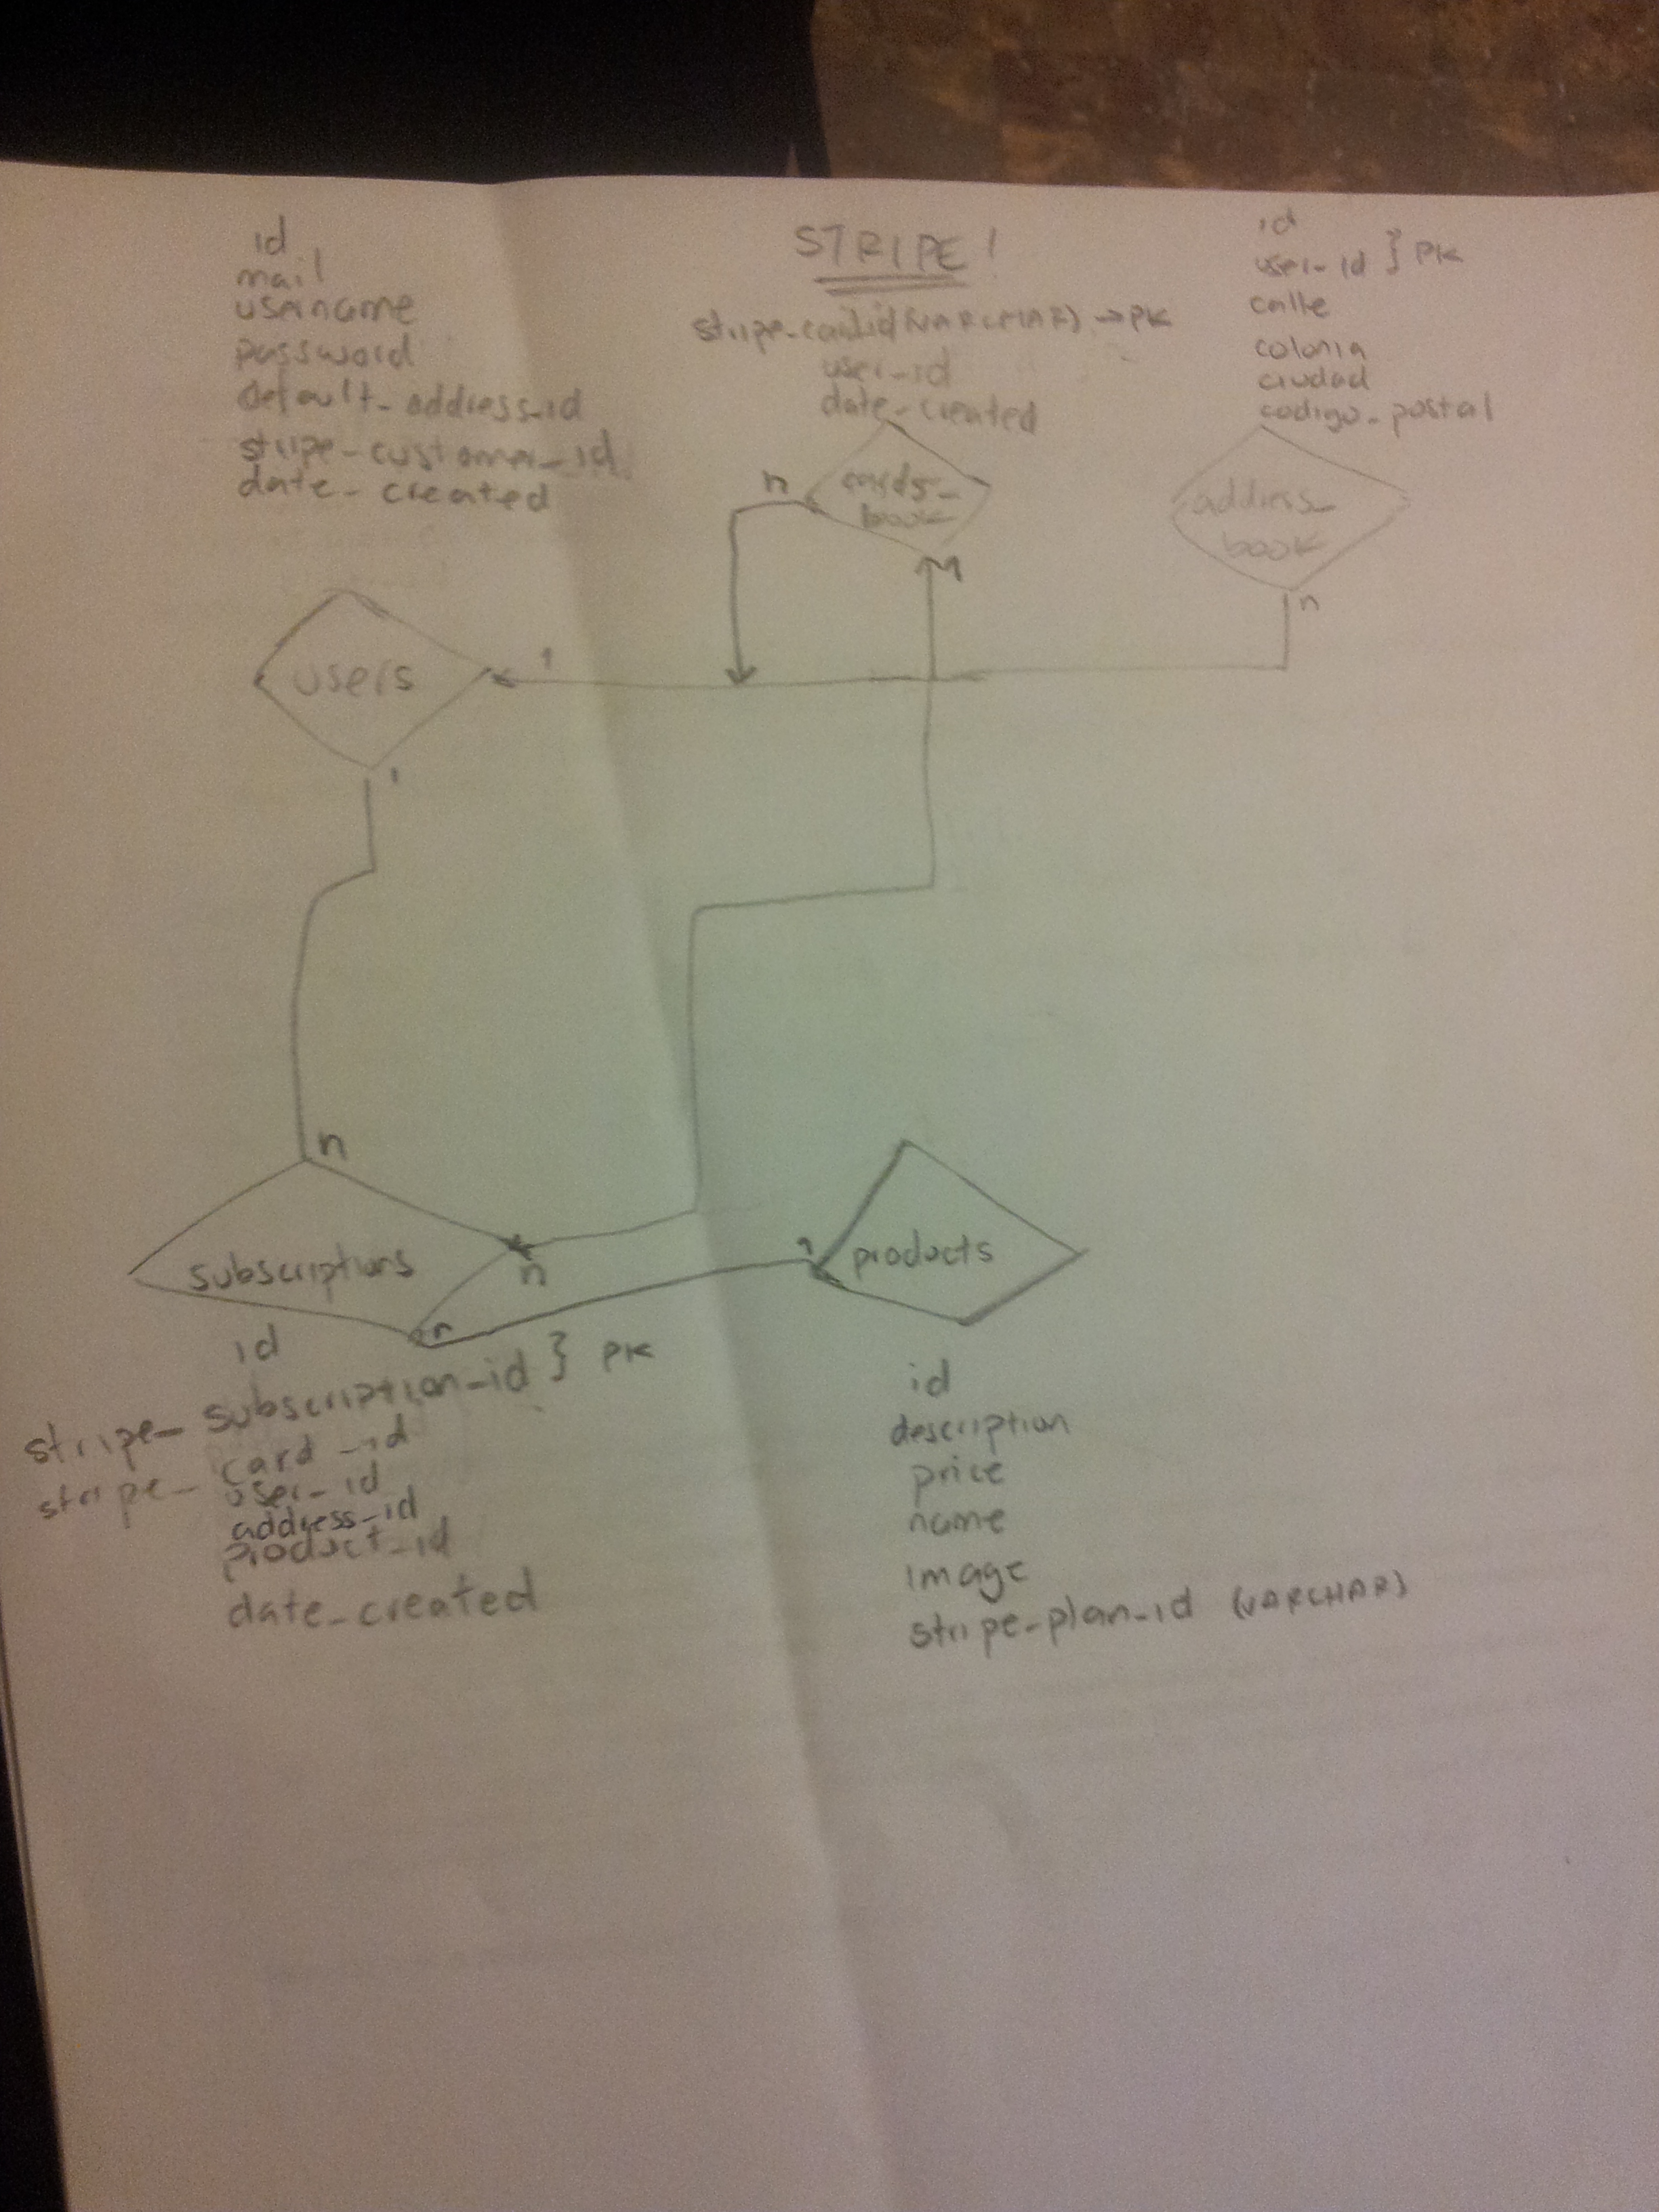 id
mail
username
password
default_address_id
stripe_customer_id
date_created
STRIPE!
stripe_card_id (VARCHAR) → PK
user_id
date_created
id
user_id } PK
calle
colonia
ciudad
codigo_postal
n
cards_
book
address_
book
n
users
1
1
n
subscriptions
n
n
1
products
id
stripe_subscription_id } PK
stripe_card_id
user_id
address_id
product_id
date_created
id
description
price
name
image
stripe_plan_id (VARCHAR)